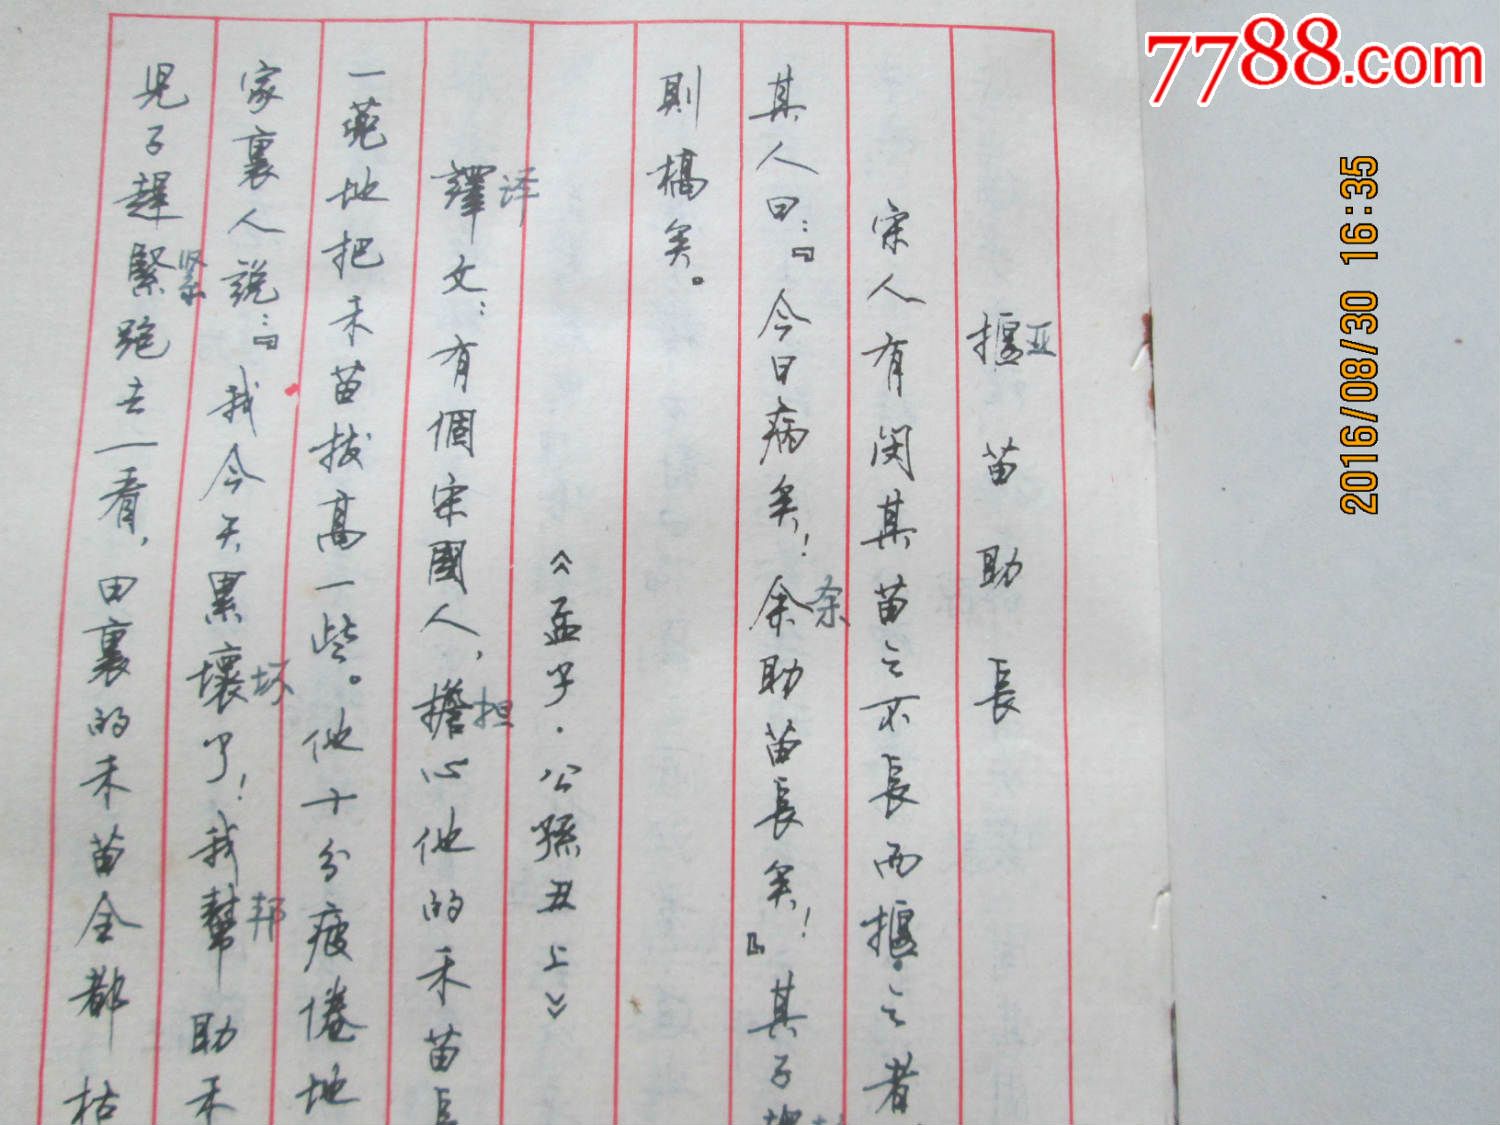 7788.com
2016/08/30 16:35
揠苗助長
亚
宋人有闵其苗之不長而揠之者
其人曰：『今日病矣！余助苗長矣！』其子
則槁矣。
《孟子·公孫丑上》
譯文：有個宋國人，擔心他的禾苗長
译
担
一蔸地把禾苗拔高一些。他十分疲倦地
家裏人說：『我今天累壞了！我幫助禾
坏
邦
兒子趕緊跑去一看，田裏的禾苗全都枯
紧